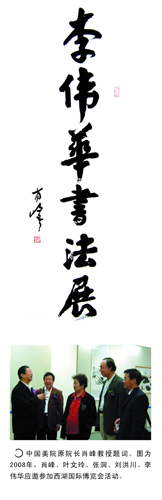 李伟華書法展
肖峰
中国美院原院长肖峰教授题词。图为
2008年，肖峰、叶文玲、张洞、刘洪川、李
伟华应邀参加西湖国际博览会活动。